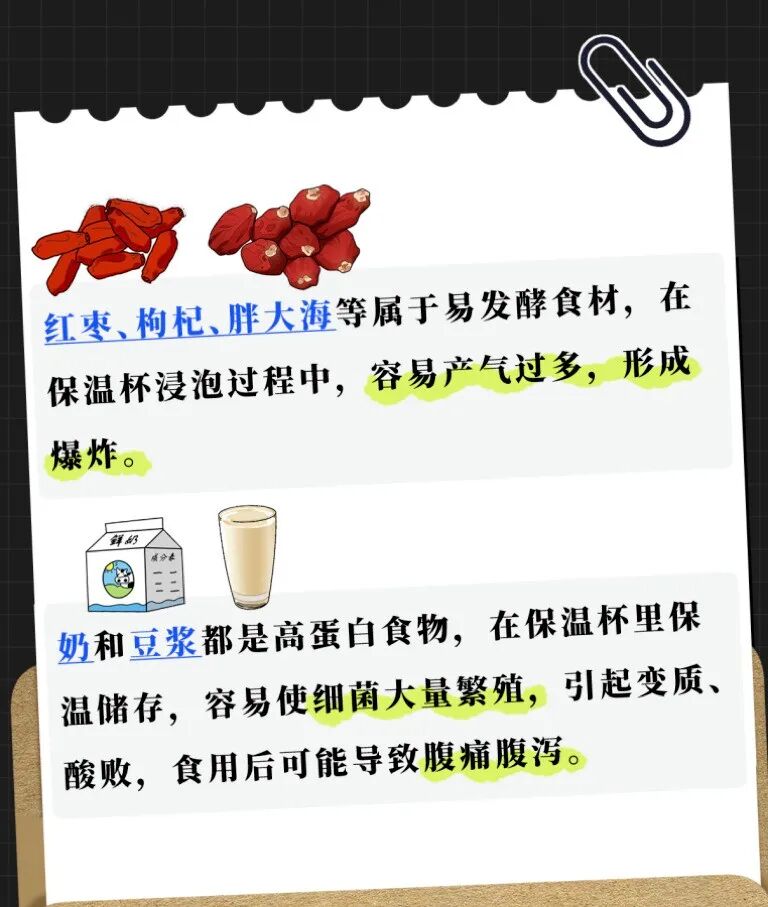 红枣、枸杞、胖大海等属于易发酵食材，在
保温杯浸泡过程中，容易产气过多，形成
爆炸。
鲜奶
成分表
奶和豆浆都是高蛋白食物，在保温杯里保
温储存，容易使细菌大量繁殖，引起变质、
酸败，食用后可能导致腹痛腹泻。